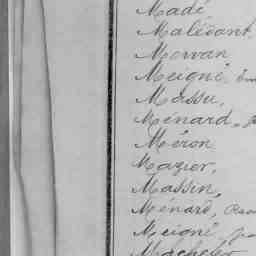 Madé
Malévant
Morvan
Meigné
Massu,
Ménard,
Méron
Mazier,
Massin,
Ménard,
Meigné